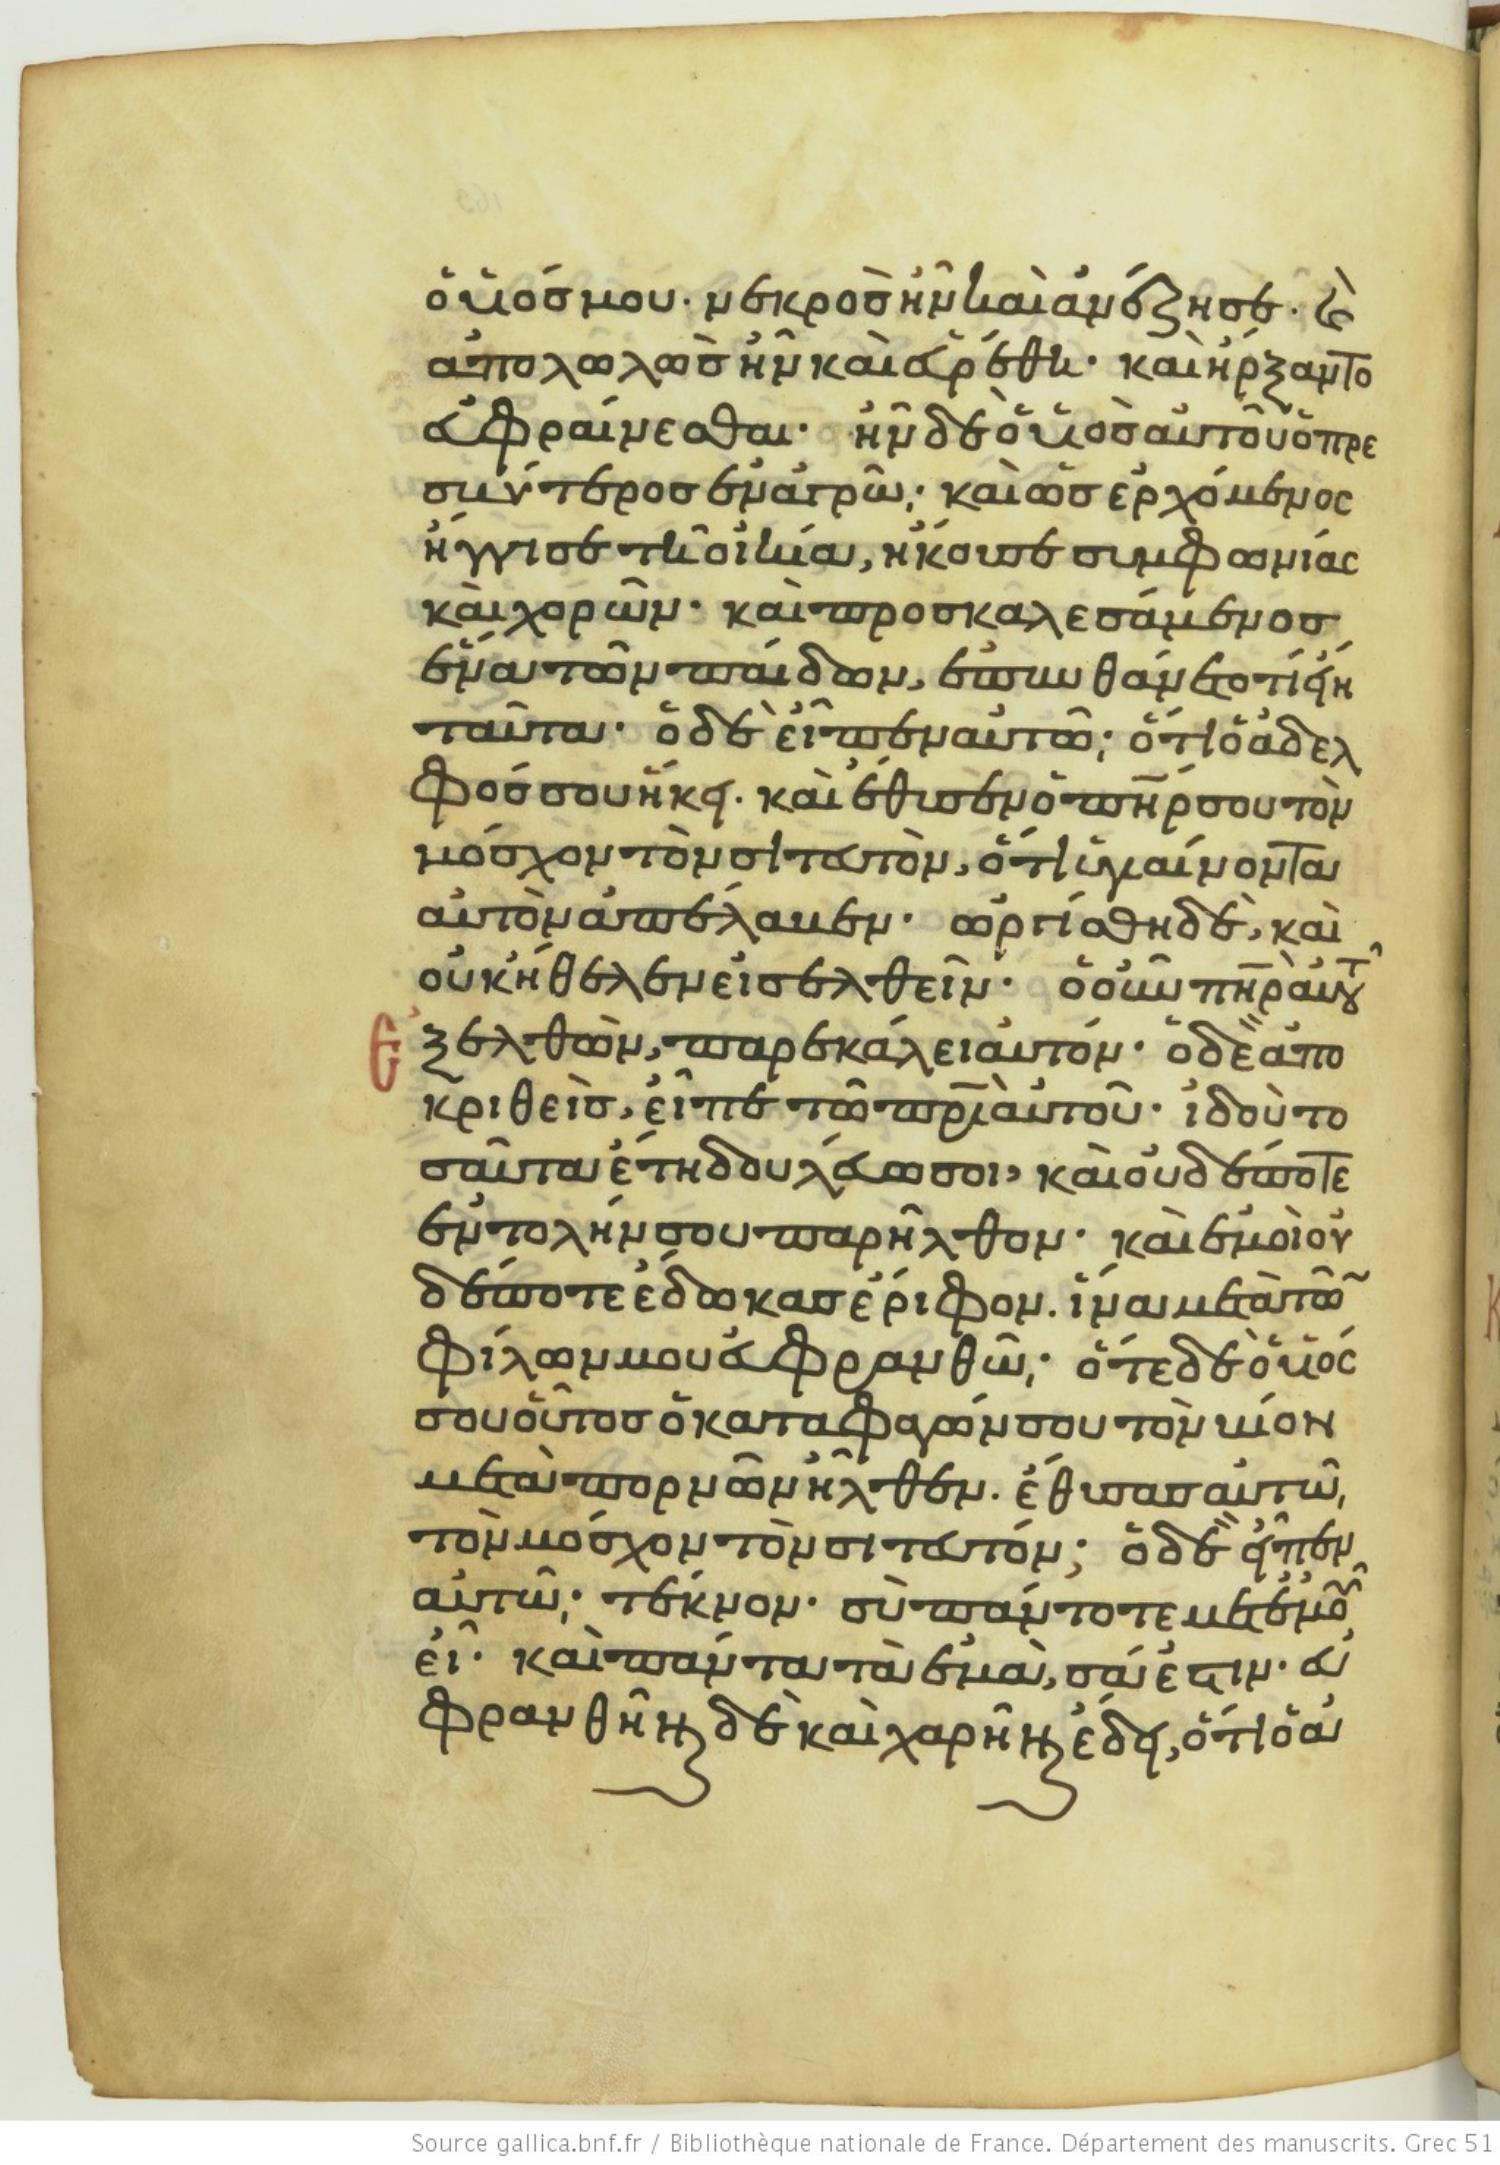 ὁ υἱός μου· νεκρὸς ἦν καὶ ἀνέζησε· καὶ
ἀπολωλὼς ἦν καὶ εὑρέθη· καὶ ἤρξαντο
εὐφραίνεσθαι· ἦν δὲ ὁ υἱὸς αὐτοῦ ὁ πρε
σβύτερος ἐν ἀγρῶ· καὶ ὡς ἐρχόμενος
ἤγγισε τῆ οἰκία, ἤκουσε συμφωνίας
καὶ χορῶν· καὶ προσκαλεσάμενος
ἕνα τῶν παίδων, ἐπυνθάνετο τί εἴη
ταῦτα· ὁ δὲ εἶπεν αὐτῶ· ὅτι ὁ ἀδελ
φός σου ἥκει· καὶ ἔθυσεν ὁ πηρ σου τὸν
μόσχον τὸν σιτευτὸν, ὅτι ὑγιαίνοντα
αὐτὸν ἀπέλαβεν· ὠργίσθη δὲ, καὶ
οὐκ ἤθελεν εἰσελθεῖν· ὁ οὖν πηρ αὐτοῦ
ἐξελθὼν, παρεκάλει αὐτόν· ὁ δὲ ἀπο
κριθεὶς, εἶπε τῶ πρι αὐτοῦ· ἰδοὺ το
σαῦτα ἔτη δουλεύω σοι, καὶ οὐδέποτε
ἐντολήν σου παρῆλθον· καὶ ἐμοὶ οὐ
δέποτε ἔδωκας ἔριφον. ἵνα μετὰ τῶν
φίλων μου εὐφρανθῶ· ὅτε δὲ ὁ υἱός
σου οὗτος ὁ καταφαγών σου τὸν βίον
μετὰ πορνῶν ἦλθεν. ἔθυσας αὐτῶ,
τὸν μόσχον τὸν σιτευτόν; ὁ δὲ εἶπεν
αὐτῶ· τέκνον· σὺ πάντοτε μετ' ἐμοῦ
εἶ· καὶ πάντα τὰ ἐμὰ, σά ἐστιν· εὐ
φρανθῆναι δὲ καὶ χαρῆναι ἔδει, ὅτι ὁ ἀ
Source gallica.bnf.fr / Bibliothèque nationale de France. Département des manuscrits. Grec 51